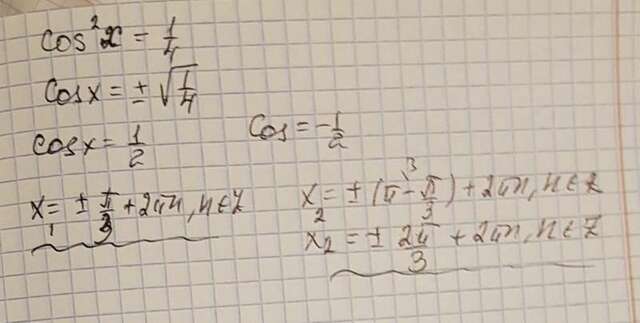 cos²x = 1/4
cosx = ± √(1/4)
cosx = 1/2
cos = -1/2
x₁ = ± π/3 + 2πn, n∈Z
x₂ = ± (π - π/3) + 2πn, n∈Z
x₂ = ± 2π/3 + 2πn, n∈Z